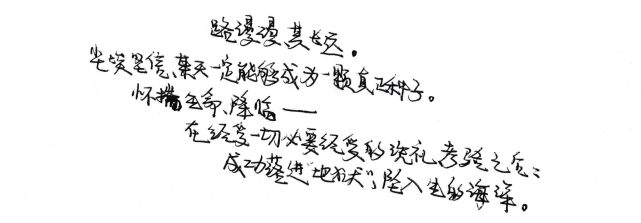 路漫漫其长远。
尘埃坚信、某天一定能够成为一颗真正种子。
怀揣生命、降临——
在经受一切必要经受的洗礼考验之后;
成功落进“地狱”,坠入生的海深。